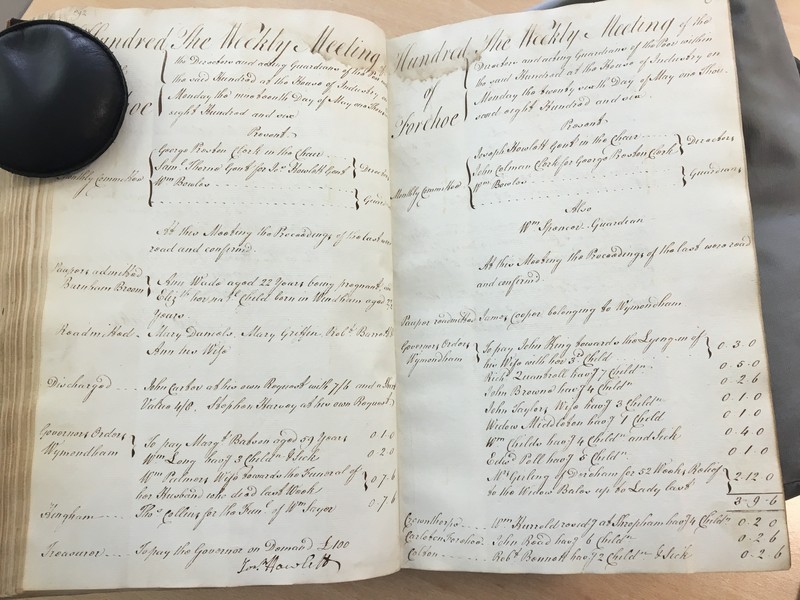 Hundred The Weekly Meeting of
the Directors and acting Guardians of the Poor
the said Hundred at the House of Industry on
Monday the nineteenth Day of May one Thous
eight Hundred and six
Present
George Preston Clerk in the Chair
Saml. Thorne Gent for Jos. Howlett Gent } Directors
Monthly Committee
Wm. Bowles
Guard
At this Meeting the Proceedings of the last were
read and confirmed.
Paupers admitted
Burnham Broom
Ann Wade aged 22 Years being pregnant, and
Elizth. her natl. Child born in Windham aged 2
Years
Readmitted - Mary Daniels, Mary Griffin, Robt. Barrett &
Ann his Wife
Discharged John Carter at his own Request with 7/6 and a
Value 4/8. Stephen Harvey at his own Request
Governors Orders
Wymondham
To pay Margt. Batson aged 59 Years 0.1.0
Wm. Long havg. 3 Childn. & Sick 0.2.0
Wm. Palmers Wife towards the Funeral of
her Husband who died last Week } 0.7.6
Kingham Thos. Collins for the Funl. of Wm. Sayer 0.7.6
Treasurer To pay the Governor on Demand £100
Jos. Howlett
Hundred of Forehoe
The Weekly Meeting of the
Directors and acting Guardians of the Poor within
the said Hundred at the House of Industry on
Monday the twenty sixth Day of May one Thou-
sand eight Hundred and six
Present
Joseph Howlett Gent in the Chair
John Colman Clerk for George Preston Clerk } Directors
Monthly Committee
Wm. Bowles
Guardians
Also
Wm. Spencer Guardian
At this Meeting the Proceedings of the last were read
and confirmed.
Pauper readmitted James Cooper belonging to Wymondham
Governors Orders
Wymondham
To pay John King towards the Lyeng in of
his Wife with her 3d. Child } 0.3.0
Richd. Quantrell havg. 7 Childn. 0.5.0
John Browne havg. 4 Childn. 0.2.6
John Taylors Wife havg. 3 Childn. 0.1.0
Widow Middleton havg. 1 Child 0.1.0
Wm. Childs havg. 4 Childn. and Sick 0.4.0
Edwd. Poll havg. 5 Childn. 0.1.0
Mr. Girling of Dereham for 52 Weeks Relief
to the Widow Bales up to Lady last } 2.12.0
3.9.6
Crownthorpe Wm. Hurrold residg. at Shropham havg. 4 Childn. 0.2.0
Carleton Forehoe John Read havg. 6 Childn. 0.2.6
Colton Robt. Bennett havg. 2 Childn. & Sick 0.2.6